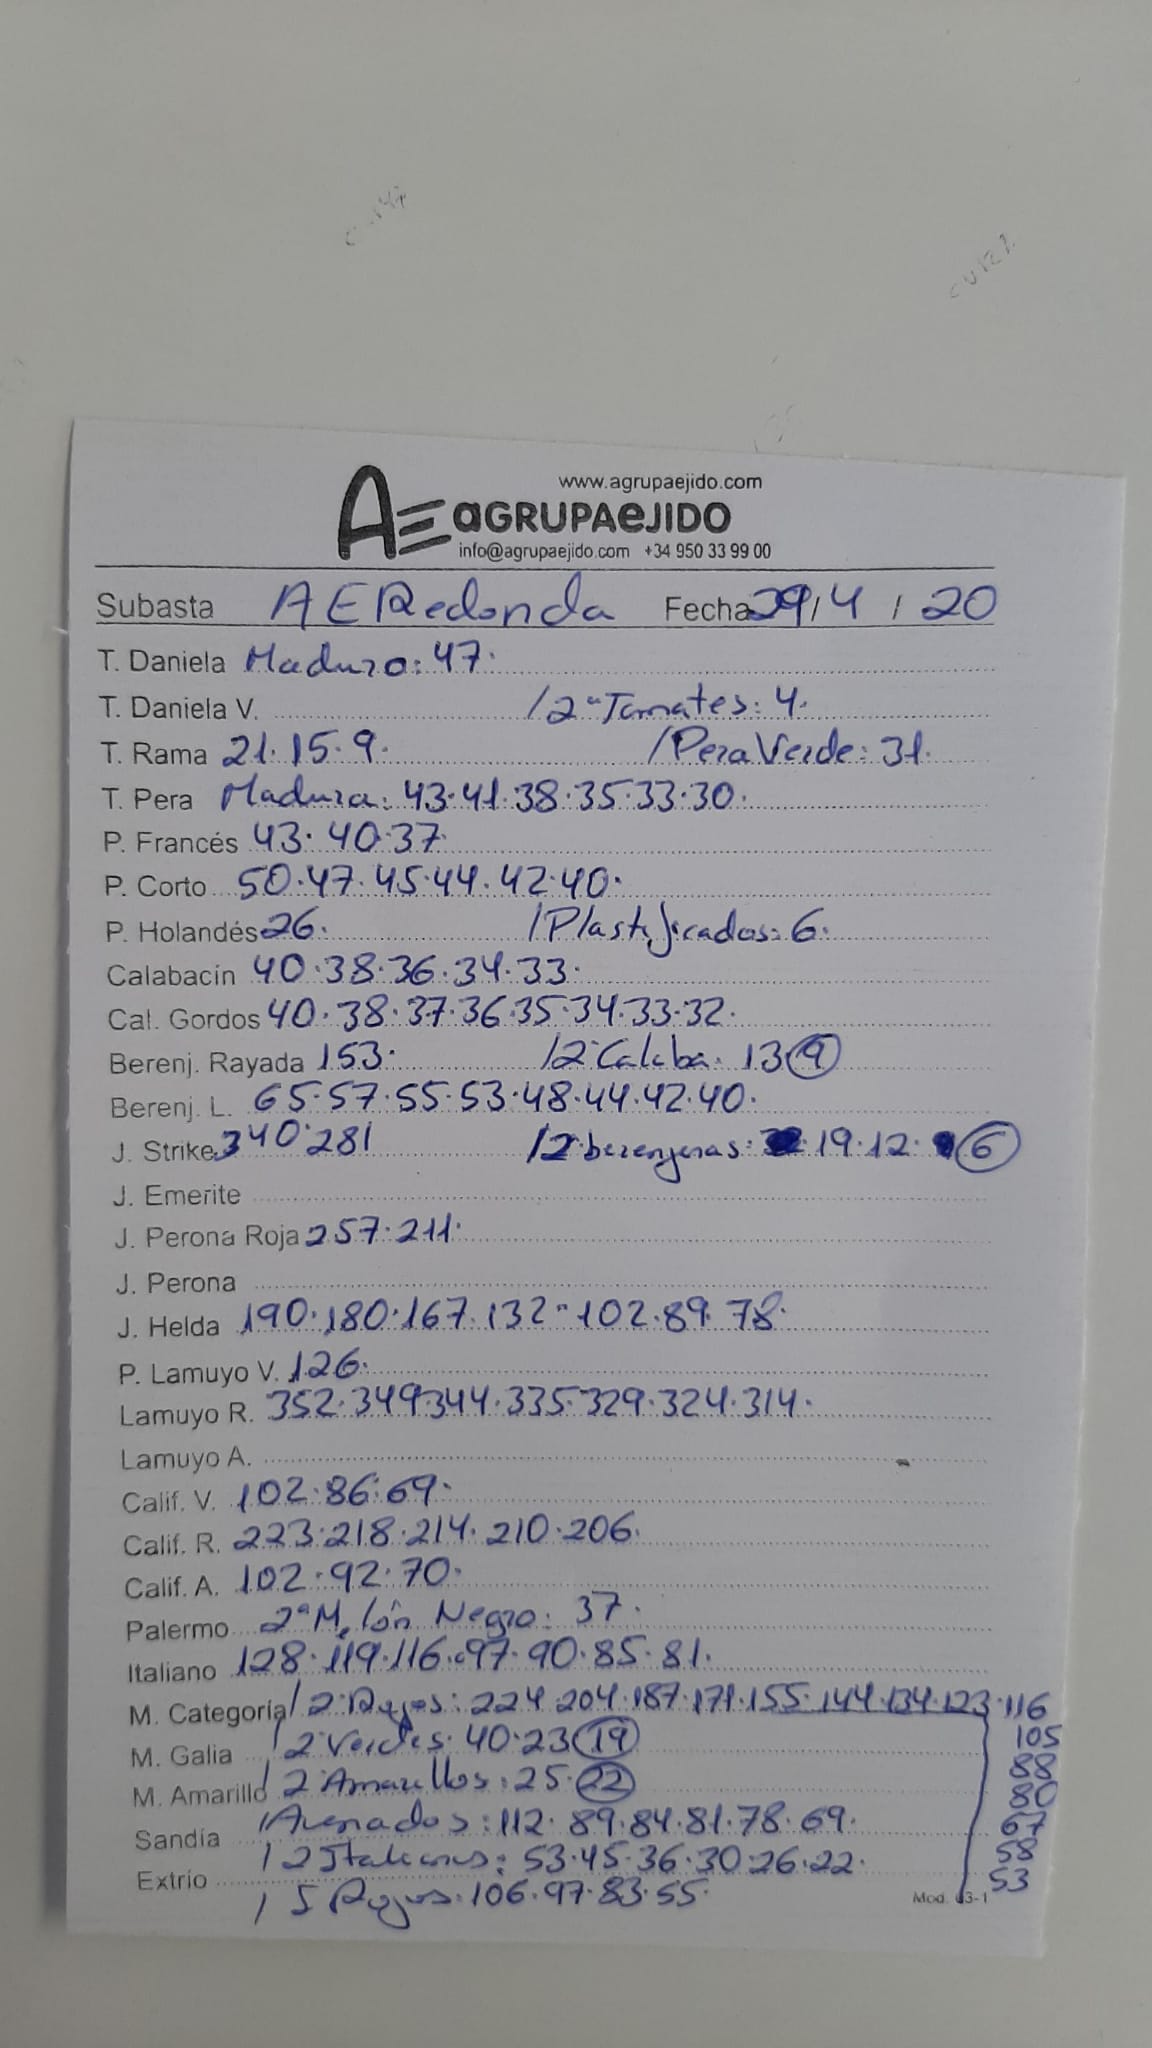 www.agrupaejido.com
AE aGRUPAeJIDO
info@agrupaejido.com +34 950 33 99 00
Subasta AE Redonda Fecha 29/4/20
T. Daniela Maduro: 47.
T. Daniela V. /2ª Tomates: 4.
T. Rama 21.15.9. /Pera Verde: 31.
T. Pera Madura: 43.41.38.35.33.30.
P. Francés 43.40.37.
P. Corto 50.47.45.44.42.40.
P. Holandés 26. /Plastificados: 6.
Calabacín 40.38.36.34.33.
Cal. Gordos 40.38.37.36.35.34.33.32.
Berenj. Rayada 153. /2ª Calaba. 13 (9)
Berenj. L. 65.57.55.53.48.44.42.40.
J. Strike 340.281 /2ª berenjenas: 19.12. (6)
J. Emerite
J. Perona Roja 257.211.
J. Perona
J. Helda 190.180.167.132-102.89.78.
P. Lamuyo V. 126.
Lamuyo R. 352.349.344.335.329.324.314.
Lamuyo A.
Calif. V. 102.86.69.
Calif. R. 223.218.214.210.206.
Calif. A. 102.92.70.
Palermo 2ª Melón Negro: 37.
Italiano 128.119.116.97.90.85.81.
M. Categoría /2ª Rojos: 224.204.187.171.155.144.134.123.116
105
M. Galia /2ª Verdes: 40.23 (19)
88
M. Amarillo /2ª Amarillos: 25. (22)
80
Sandía /Asurados: 112.89.84.81.78.69.
67
58
/2 Italianos: 53.45.36.30.26.22.
Extrío
53
/5 Rojos: 106.97.83.55.